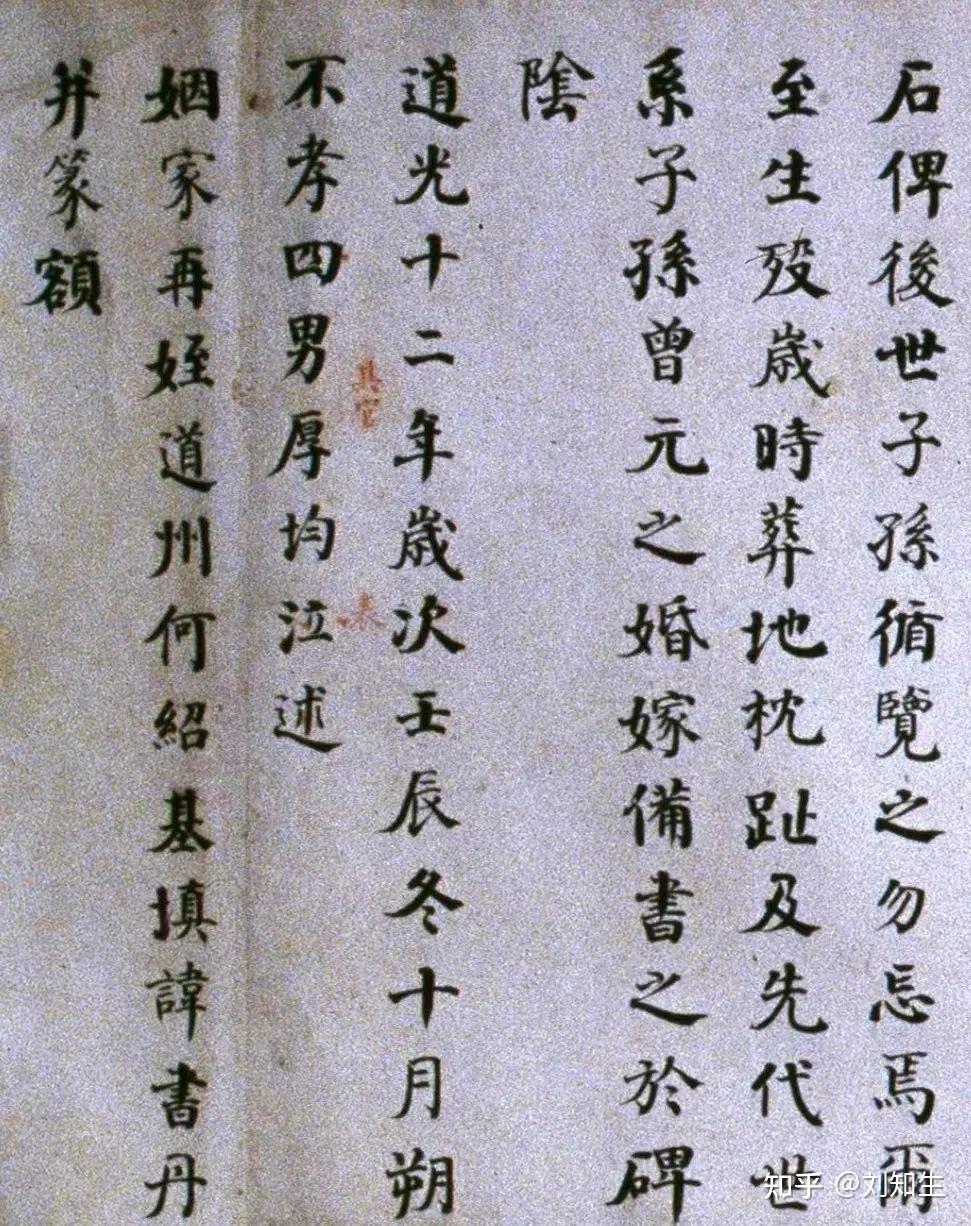 石俾後世子孫循覽之勿忘焉爾
至生歿歲時葬地枕趾及先代世
系子孫曾元之婚嫁備書之於碑
陰
道光十二年歲次壬辰冬十月朔
不孝四男厚均泣述
姻家再姪道州何紹基填諱書丹
并篆額
知乎 @刘知生